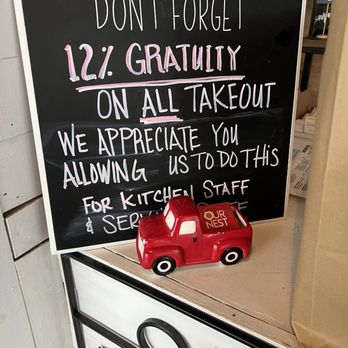 DON'T FORGET
12% GRATUITY
ON ALL TAKEOUT
WE APPRECIATE YOU
ALLOWING US TO DO THIS
FOR KITCHEN STAFF
&
OUR
NEST